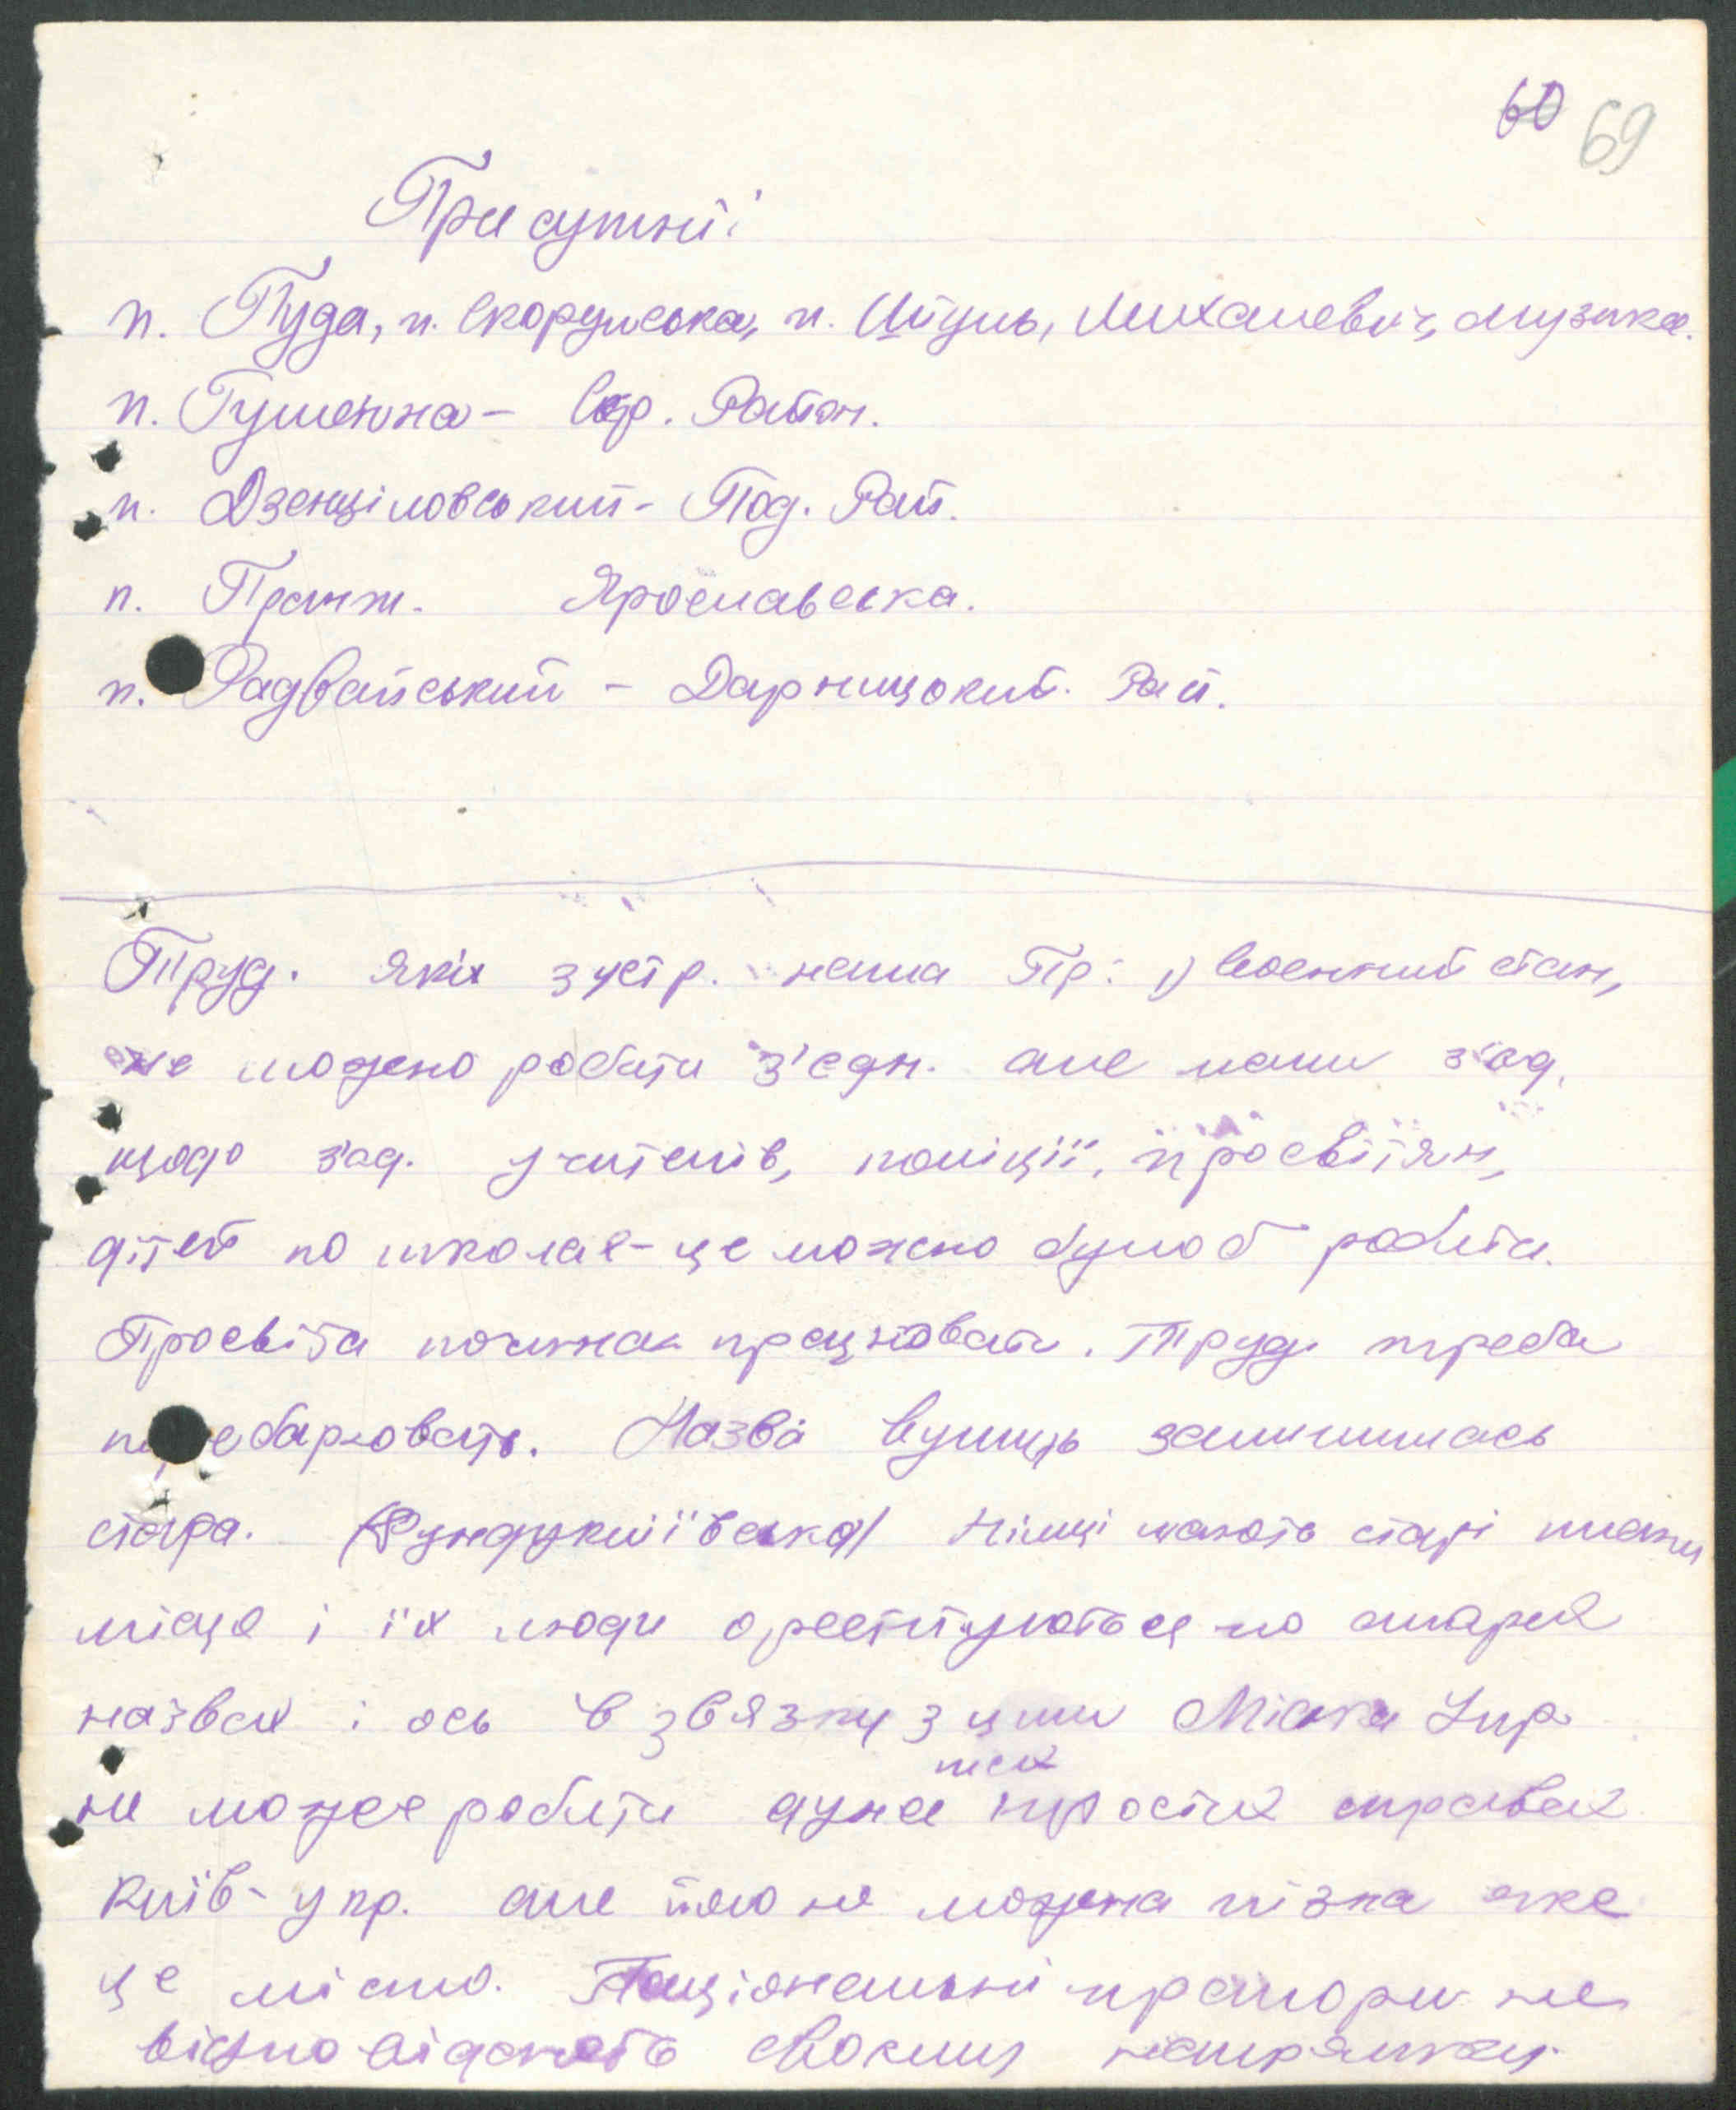 60 69
Присутні:
п. Гуда, п. Скорульська, п. Шуль, Михалевич, Музика.
п. Гуменна – Район.
п. Дзенціловський - Под. Рай.
п. Ярославська.
п. Радванський – Дарницький. Рай.
Труд. яких зустр. наша Пр: 1) Воєнний стан,
не можено робити з'єдн. але наши з'од.
щодо з'од. учителів, поліції, просвітян,
дітей по школах - це можно було б робити.
Просвіта почина працювати. Труд. треба
перебарювать. Назва вулиць залишилась
стара. (Фундукліївська) Німці мають старі плани
місця і їх люди орієнтуються по старих
назвах і ось в звязку з цими Міска Упр.
не може робити дуже тих простих справах
Київ - упр. але його не можена пізна яке
це місто. Національні прапори не
відповідають своєму напрямку.